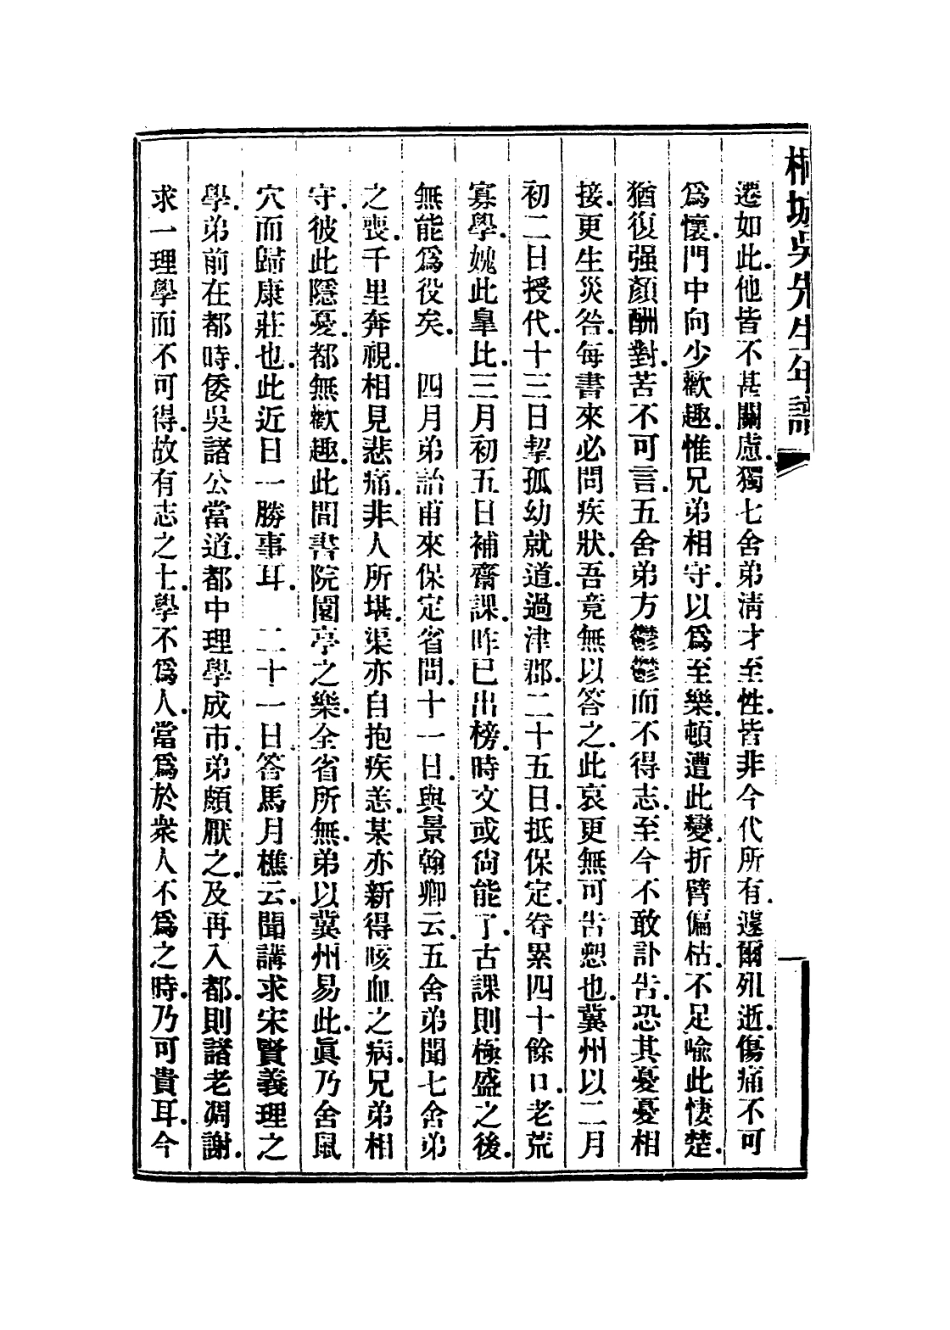 桐城吳先生年譜
遷如此.他皆不甚關慮.獨七舍弟淸才至性.皆非今代所有.遽爾殂逝.傷痛不可
爲懷.門中向少歡趣.惟兄弟相守.以爲至樂.頓遭此變.折臂偏枯.不足喻此悽楚.
猶復强顏酬對.苦不可言.五舍弟方鬱鬱而不得志.至今不敢訃告.恐其憂憂相
接.更生災咎.每書來必問疾狀.吾竟無以答之.此哀更無可告愬也.冀州以二月
初二日授代.十三日挈孤幼就道.過津郡.二十五日.抵保定.眷累四十餘口.老荒
寡學.媿此皐比.三月初五日補齋課.昨已出榜.時文或尙能了.古課則極盛之後.
無能爲役矣. 四月弟詒甫來保定省問.十一日.與景翰卿云.五舍弟聞七舍弟
之喪.千里奔視.相見悲痛.非人所堪.渠亦自抱疾恙.某亦新得咳血之病.兄弟相
守.彼此隱憂.都無歡趣.此間書院園亭之樂.全省所無.弟以冀州易此.眞乃舍鼠
穴而歸康莊也.此近日一勝事耳. 二十一日.答馬月樵云.聞講求宋賢義理之
學.弟前在都時.倭吳諸公當道.都中理學成市.弟頗厭之.及再入都.則諸老凋謝.
求一理學而不可得.故有志之士.學不爲人.當爲於衆人不爲之時.乃可貴耳.今